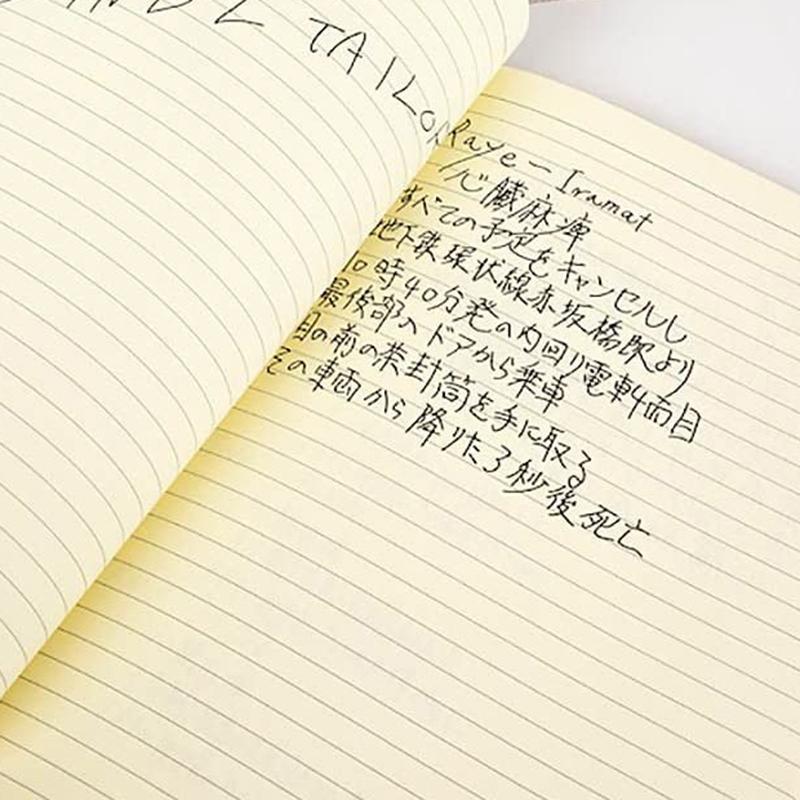 TAILOR
Raye-Iramat
心臓麻痺
すべての予定をキャンセルし
地下鉄環状線赤坂橋駅より
10時40分発の内回り電車4両目
最後部のドアから乗車
目の前の茶封筒を手に取る
その車両から降りた3秒後死亡